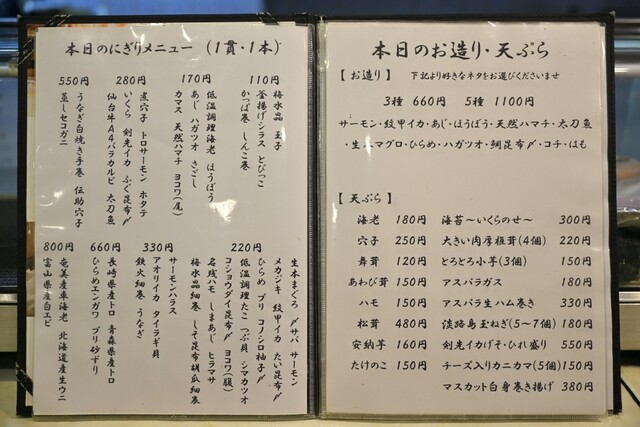 本日のにぎりメニュー (1貫・1本)
110円
梅水晶 玉子
釜揚げシラス とびっこ
かっぱ巻 しんこ巻
170円
低温調理海老 ほうぼう
あじ ハガツオ さごし
カマス 天然ハマチ ヨコワ(尾)
280円
煮穴子 トロサーモン ホタテ
いくら 剣先イカ ふぐ昆布〆
仙台牛A4バラカルビ 太刀魚
550円
うなぎ白焼き手巻 伝助穴子
蒸しセコガニ
220円
生本まぐろ 〆サバ サーモン
メカジキ 紋甲イカ たい昆布〆
ひらめ ブリ コノシロ柚子〆
低温調理たこ つぶ貝 シマカツオ
コショウダイ昆布〆 ヨコワ(腹)
名残ハモ しまあじ ヒラマサ
梅水晶細巻 しそ昆布胡瓜細巻
330円
サーモンハラス
アオリイカ タイラギ貝
鉄火細巻 うなぎ
660円
長崎県産トロ 青森県産トロ
ひらめエンガワ ブリ砂ずり
800円
奄美産車海老 北海道産生ウニ
富山県産白エビ
本日のお造り・天ぷら
【お造り】 下記より好きなネタをお選びくださいませ
3種 660円 5種 1100円
サーモン・紋甲イカ・あじ・ほうぼう・天然ハマチ・太刀魚
・生本マグロ・ひらめ・ハガツオ・鯛昆布〆・コチ・はも
【天ぷら】
海老 180円 海苔〜いくらのせ〜 300円
穴子 250円 大きい肉厚椎茸(4個) 220円
舞茸 120円 とろとろ小芋(3個) 150円
あわび茸 150円 アスパラガス 180円
ハモ 150円 アスパラ生ハム巻き 330円
松茸 480円 淡路島玉ねぎ(5〜7個) 180円
安納芋 160円 剣先イカげそ・ひれ盛り 550円
たけのこ 150円 チーズ入りカニカマ(5個) 150円
マスカット白身巻き揚げ 380円